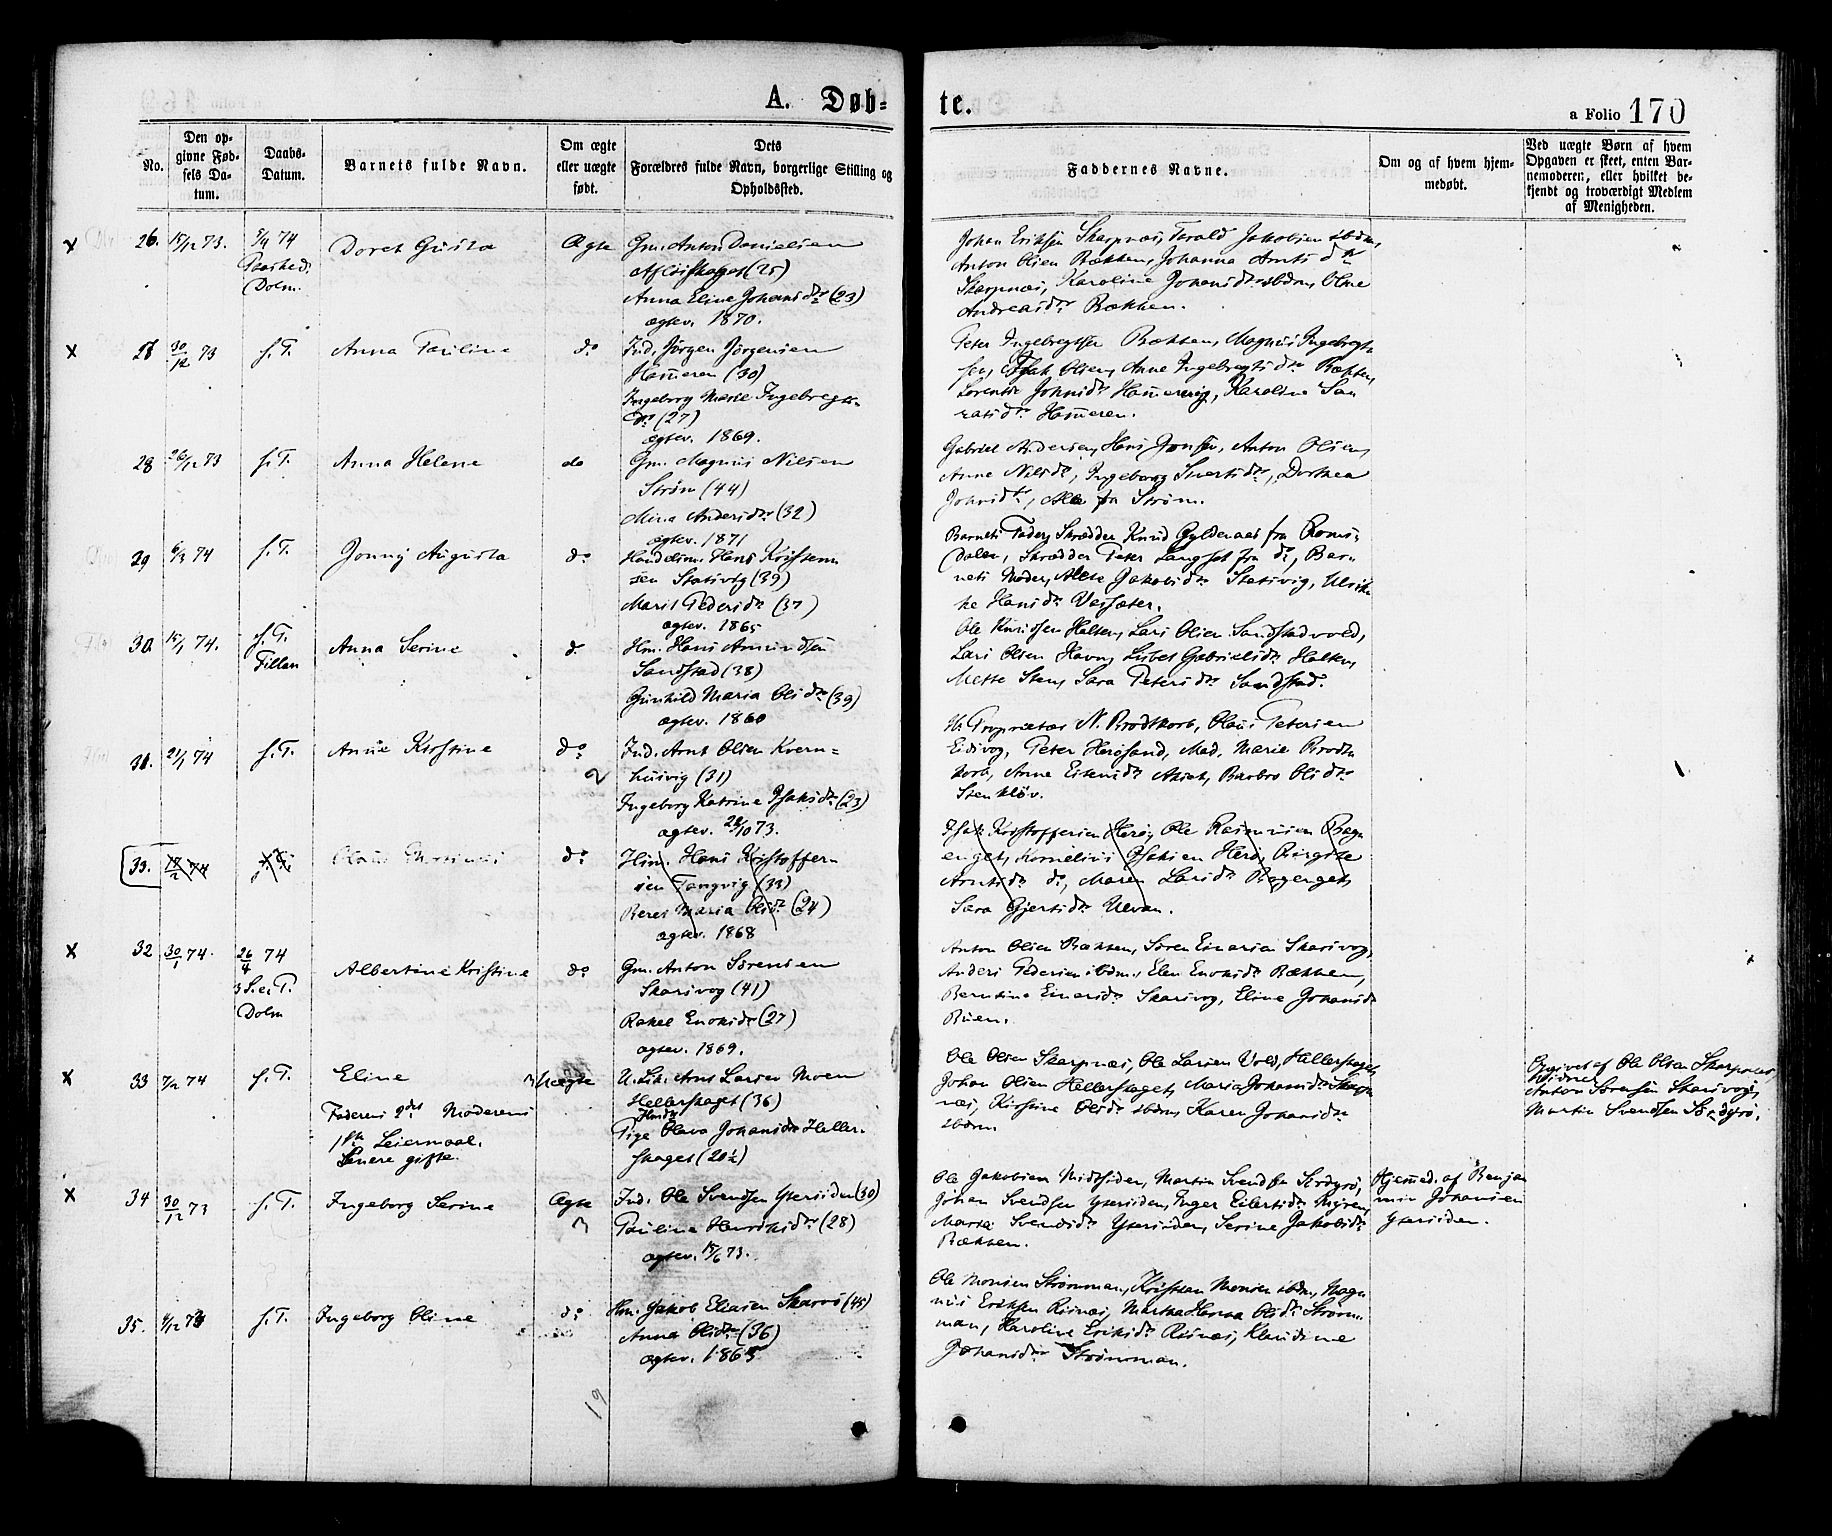 A. Døb-
te.
a Folio 170
No.
Den op-
givne Fød-
sels Da-
tum.
Daabs-
Datum.
Barnets fulde Navn.
Om ægte
eller uægte
født.
Dets
Forældres fulde Navn, borgerlige Stilling og
Opholdssted.
Faddernes Navne.
Om og af hvem hjem-
medøbt.
Ved uægte Børn af hvem
Opgaven er skeet, enten Bar-
nemoderen, eller hvilket be-
kjendt og troværdigt Medlem
af Menigheden.
x 26. 15/12 73. 5/4 74
Dolm.
Doret Gusta
Ægte
Gm. Anton Danielsen
(25)
Anna Eline Johansdr (23)
ægtev. 1870.
Johan Eriksen Skarpnæs, Tarald Jakobsen ibdm,
Anton Olsen Bækken, Johanna Arntsdtr
Skarpnæs, Karoline Johansdtr ibdm, Oline
Andreasdtr Bækken.
x 27 30/12 73 s. T. Anna Pauline do
Ind. Jørgen Jørgensen
Hammeren (30)
Ingeborg Marie Ingebregts-
dr (27)
ægtev. 1869.
Peter Ingebregtsen Bækken, Magnus Ingebregt-
sen, Isak Olsen, Anne Ingebregtsdr Bækken,
Lorentse Johnsdr, Karoline
Hammeren.
28 26/12 73 s. T. Anna Helene do
Gm. Magnus Nilsen
Strøm (44)
Mina Andersdtr (32)
ægtev. 1871
Gabriel Andersen, Hans Jonsen, Anton Olsen,
Anne Nilsdr, Ingeborg Sivertsdr, Dorthea
Johnsdtr, Alle fra Strøm.
29 6/3 74 s. T. Jonny Augusta do
Handelsm. Hans Kristian-
sen Stativig (39)
Marit Pedersdr (37)
ægtev. 1865
Barnets Fader, Skrædder Knud Gyldenaas fra Roms-
dalen, Skrædder Peter Langset fra do, Bar-
nets Moder, Jakobsdr Stativig, Ulrik-
ke Hansdr Vassæter.
30. 15/1 74. s. T.
Fillan
Anna Serine do
Hm. Hans Amundsen
Sandstad (38)
Gunhild Maria Olsdr (39)
ægtev. 1860
Ole Knudsen Halten, Lars Olsen Sandstadvold,
Lars Olsen Havn, Lisbet Gabrielsdr Halten,
Mette Sten, Sara Petersdr Sandstad.
31. 21/1 74 s. T. Anne Kirstine do
2
Ind. Arnt Olsen Kvern-
husvig (31)
Ingeborg Katrine Isaksdr (23)
ægtev. 28/10 73.
Hr. Proprietær N. Brodtkorb, Olaus Petersen
Eidsvog, Peter Herøsand, Mad. Marie Brodt-
korb, Anne Akset, Barbro Olsdr
Stenkløv.
33. 17/2 74 s. T. do
Hm. Hans Kristoffer-
sen Tangvig (33)
Beret Maria Olsdr (24)
ægtev. 1868
Isak Kristoffersen Herø, Ole Rasmussen Bagn-
enget, Kornelius Isaksen Herø, Birgitte
Arntsdr do, Maren Larsdr Bagenget,
Sara Gjertsdr Ulvan.
x 32 30/1 74. 26/4 74
3 S. e. P.
Dolm
Albertine Kristine do
Gm. Anton Sørensen
Skarsvog (41)
Rakel Enoksdr (27)
ægtev. 1869.
Anton Olsen Bækken, Søren Einarsen Skarsvog,
Anders Pedersen ibdm., Elen Enoksdr Bækken,
Berntine Einarsdr Skarsvog, Eline Johansdr
Buen.
x 33 7/2 74 s. T. Eline
Faderens 2det Moderens
1ste Leiermaal.
Senere gifte.
Uægte
U. Lik. Arnt Larsen Moen
Hellerskaget (36)
Pige Olava Johansdr Heller-
skaget (20½)
Ole Olsen Skarpnæs, Ole Larsen Vold, Hellerskaget,
Johan Olsen Hellerskaget, Maria Johansdr Skarp-
næs, Kirstine Olsdr ibdm, Karen Johansdr
ibdm.
Opgivet af Ole Olsen Skarpnæs,
Vidner
Anton Sørensen Skarsvog,
Martin Svendsen Sørdyrø.
x 34 30/12 73 s. T. Ingeborg Serine
Ægte
Ind. Ole Svendsen Ytersiden (30)
Pauline Henriksdr (28)
ægtev. 15/6 73.
Ole Jakobsen Midtsiden, Martin Svendsen Sørdyrø,
Johan Svendsen Ytersiden, Inger Eilertsdr,
Marta Svendsdr Ytersiden, Serine Jakobsdr
Bækken.
Hjemmed. af Benja-
min Johansen
Ytersiden.
35. 4/12 73 s. T. Ingeborg Oline do
Hm. Jakob Eliasen Skarvø (45)
Anna Olsdtr (36)
ægtev. 1865
Ole Monsen Strømman, Kristian Monsen ibdm, Mag-
nus Eriksen Risnæs, Martha Hanna Olsdr Strøm-
man, Karoline Eriksdr Risnæs, Klausine
Johansdr Strømman.
19